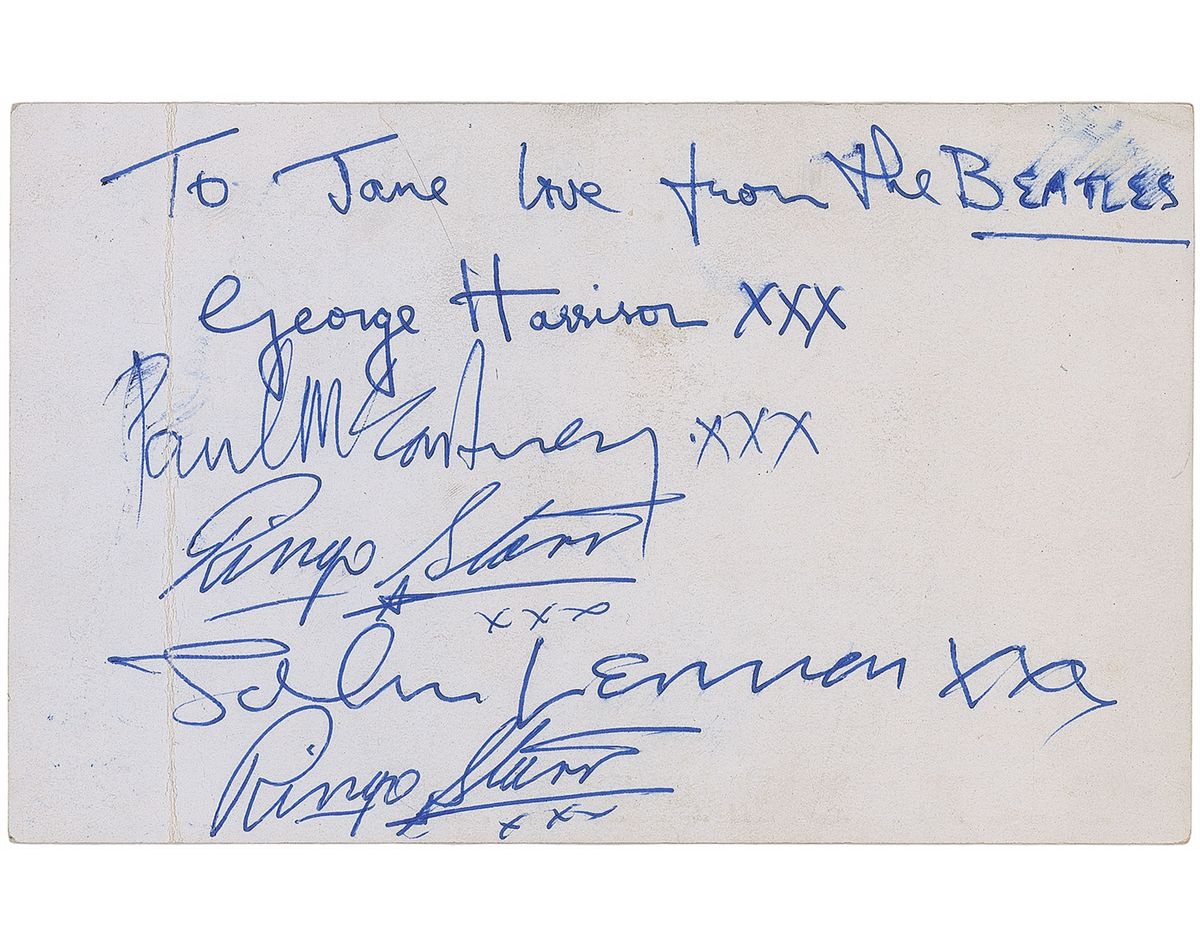 To Jane love from The BEATLES
George Harrison XXX
Paul McCartney XXX
Ringo Starr
xxx
John Lennon xxx
Ringo Starr
xxx